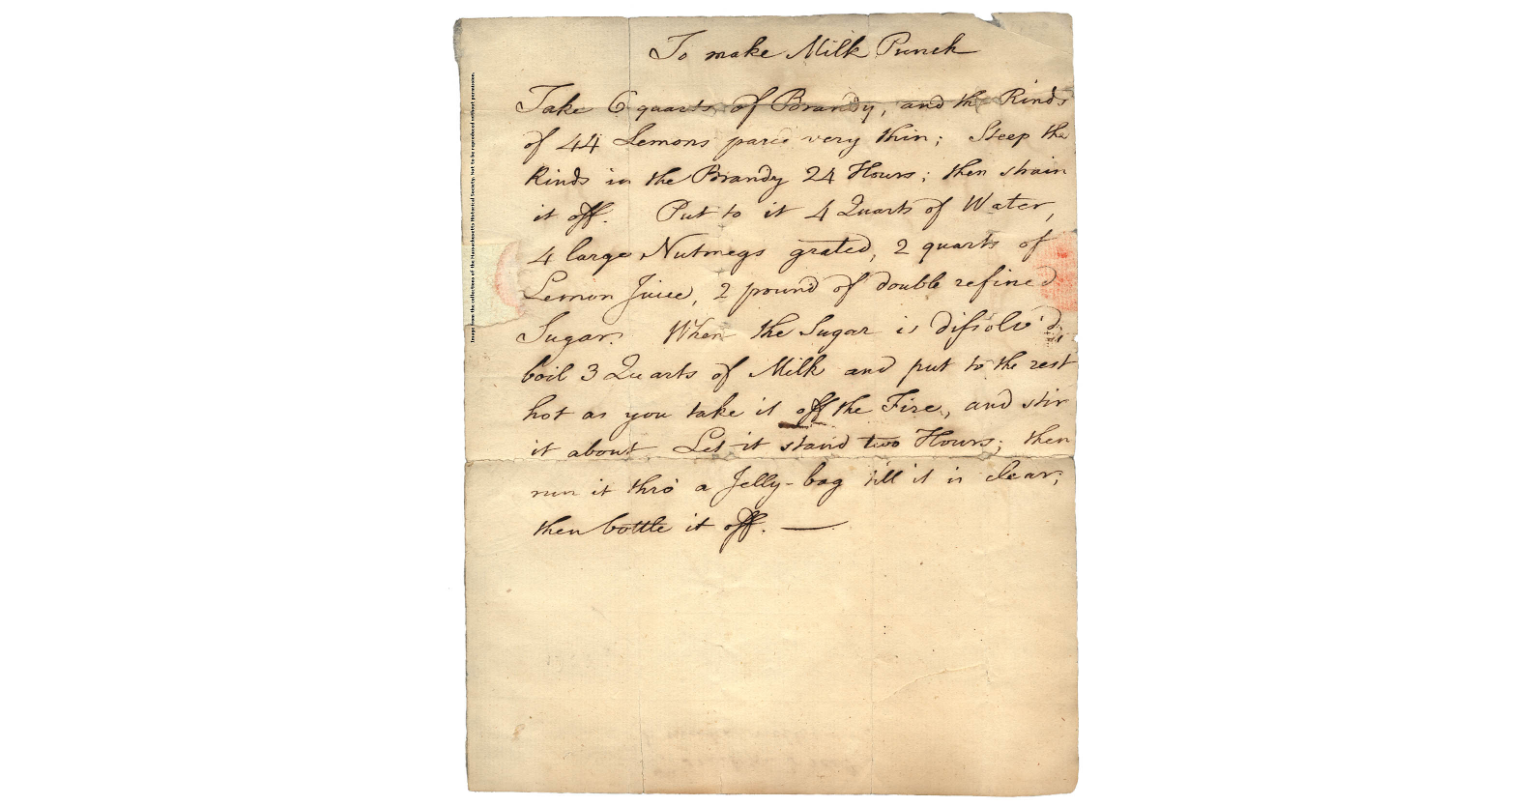 To make Milk Punch
Take 6 quarts of Brandy, and the Rinds
of 44 Lemons pared very thin; Steep the
Rinds in the Brandy 24 Hours; then strain
it off. Put to it 4 Quarts of Water,
4 large Nutmegs grated, 2 quarts of
Lemon Juice, 2 pound of double refined
Sugar. When the Sugar is dissolv'd,
boil 3 Quarts of Milk and put to the rest
hot as you take it off the Fire, and stir
it about. Let it stand two Hours; then
run it thro' a Jelly-bag till it is clear;
then bottle it off. —
Image from the collections of the Massachusetts Historical Society. Not to be reproduced without permission.